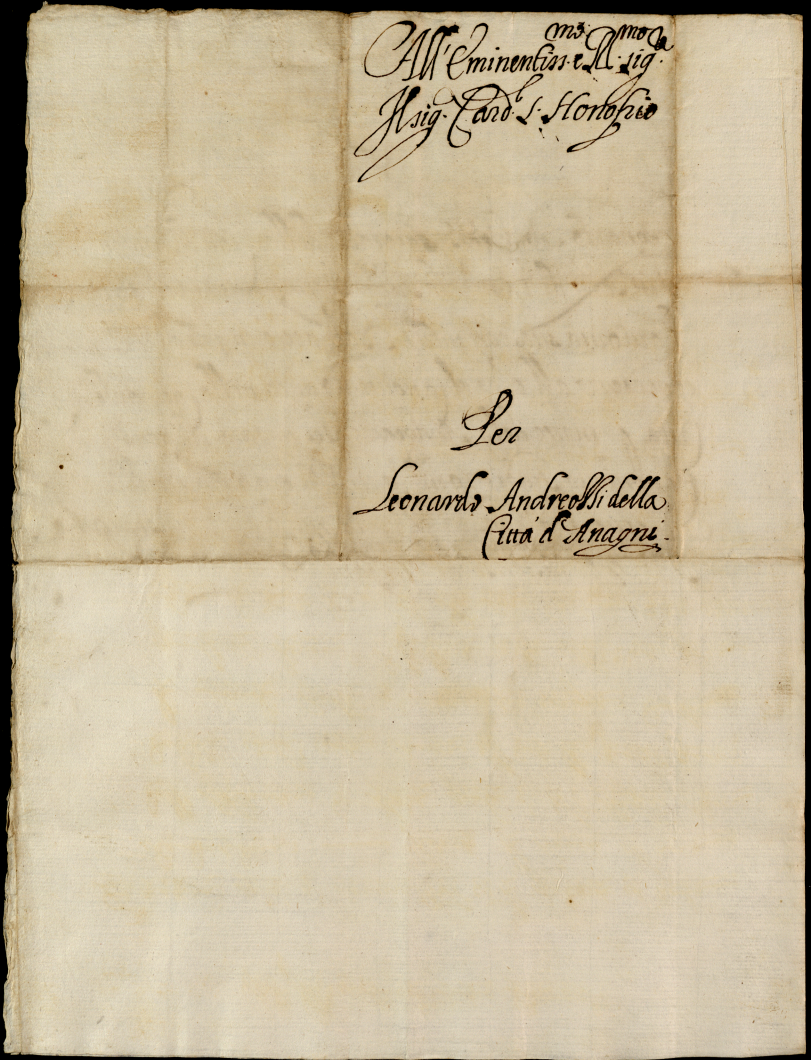 All'Eminentiss.mo e R.mo sig.r
Il sig. Card.l S. Honofrio
Per
Leonardo Andreossi della
Città d'Anagni.